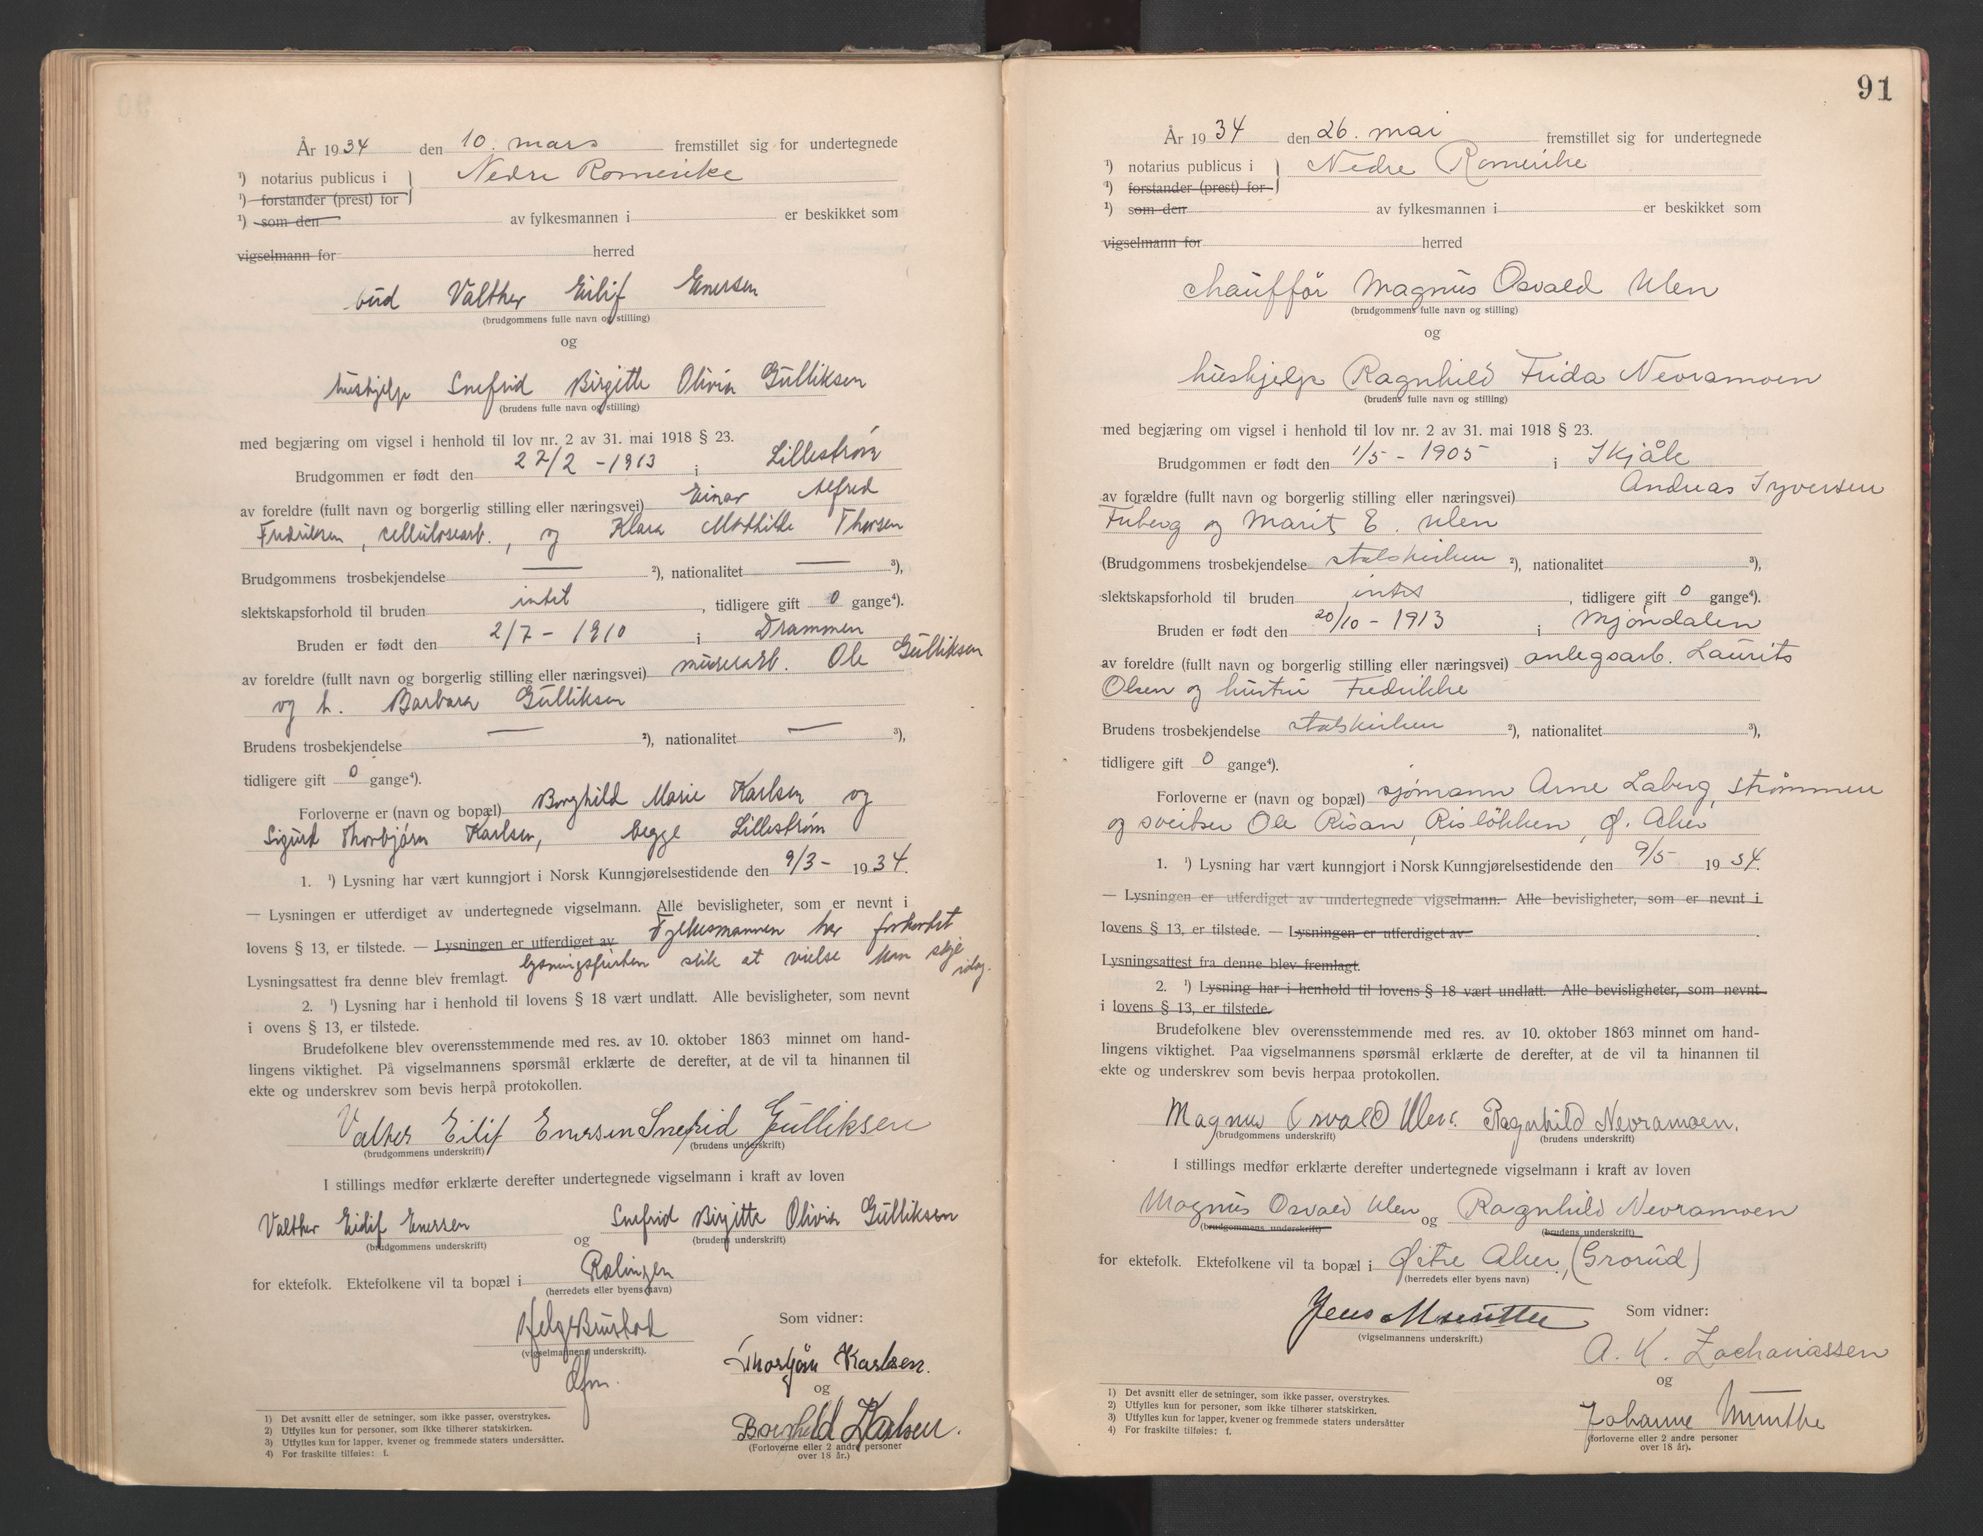 År 1934 den 10. mars fremstillet sig for undertegnede
¹) notarius publicus i Nedre Romerike
¹) forstander (prest) for
¹) som den av fylkesmannen i er beskikket som
vigselmann for herred
bud Valther Eilif Enersen
(brudgommens fulle navn og stilling)
og
hushjelp Snefrid Birgitte Olivia Gulliksen
(brudens fulle navn og stilling)
med begjæring om vigsel i henhold til lov nr. 2 av 31. mai 1918 § 23.
Brudgommen er født den 22/2 - 1913 i Lillestrøm
av foreldre (fullt navn og borgerlig stilling eller næringsvei) Einar Alfred
Fredriksen, cellulosearb., og Klara Mathilde Thorsen
Brudgommens trosbekjendelse — ²), nationalitet — ³),
slektskapsforhold til bruden intet, tidligere gift 0 gange⁴).
Bruden er født den 2/7 - 1910 i Drammen
av foreldre (fullt navn og borgerlig stilling eller næringsvei) murerarb. Ole Gulliksen
og h. Barbara Gulliksen
Brudens trosbekjendelse — ²), nationalitet — ³),
tidligere gift 0 gange⁴).
Forloverne er (navn og bopæl) Borghild Marie Karlsen og
Sigurd Thorbjørn Karlsen, begge Lillestrøm
1. ¹) Lysning har vært kunngjort i Norsk Kunngjørelsestidende den 9/3 - 1934.
— Lysningen er utferdiget av undertegnede vigselmann. Alle bevisligheter, som er nevnt i
lovens § 13, er tilstede. — Lysningen er utferdiget av Fylkesmannen har forkortet
Lysningsattest fra denne blev fremlagt. lysningsfristen slik at vielse kan skje idag.
2. ¹) Lysning har i henhold til lovens § 18 vært undlatt. Alle bevisligheter, som nevnt
i ovens § 13, er tilstede.
Brudefolkene blev overensstemmende med res. av 10. oktober 1863 minnet om hand-
lingens viktighet. På vigselmannens spørsmål erklærte de derefter, at de vil ta hinannen til
ekte og underskrev som bevis herpå protokollen.
Valther Eilif Enersen Snefrid Gulliksen
(brudgommens underskrift) (brudens underskrift)
I stillings medfør erklærte derefter undertegnede vigselmann i kraft av loven
Valther Eilif Enersen og Snefrid Birgitte Olivia Gulliksen
(brudgommens underskrift) (brudens underskrift)
for ektefolk. Ektefolkene vil ta bopæl i Rælingen
(herredets eller byens navn)
Helge Brustad Som vidner:
(vigselmannens underskrift).
Thorbjørn Karlsen.
og
Borghild Karlsen.
(Forloverne eller 2 andre personer
over 18 år.)
1) Det avsnitt eller de setninger, som ikke passer, overstrykes.
2) Utfylles kun for personer, som ikke tilhører statskirken.
3) Utfylles kun for lapper, kvener og fremmede staters undersåtter.
4) For fraskilte tilføies: f.
91
År 1934 den 26. mai fremstillet sig for undertegnede
¹) notarius publicus i Nedre Romerike
¹) forstander (prest) for
¹) som den av fylkesmannen i er beskikket som
vigselmann for herred
chauffør Magnus Osvald Ulen
(brudgommens fulle navn og stilling)
og
hushjelp Ragnhild Frida Nevramoen
(brudens fulle navn og stilling)
med begjæring om vigsel i henhold til lov nr. 2 av 31. mai 1918 § 23.
Brudgommen er født den 1/5 - 1905 i Skjåk
av forældre (fullt navn og borgerlig stilling eller næringsvei) Andreas Syversen
Fuberg og Marit E. Ulen
(Brudgommens trosbekjendelse statskirken ²), nationalitet ³),
slektskapsforhold til bruden intet, tidligere gift 0 gange⁴).
Bruden er født den 20/10 - 1913 i Mjøndalen
av foreldre (fullt navn og borgerlig stilling eller næringsvei) anlegsarb. Laurits
Olsen og hustru Fredrikke
Brudens trosbekjendelse statskirken ²), nationalitet ³),
tidligere gift 0 gange⁴).
Forloverne er (navn og bopæl) sjømann Arne Laberg, Strømmen
og sveitser Ole Risan, Risløkken, Ø. Aker
1. ¹) Lysning har vært kunngjort i Norsk Kunngjørelsestidende den 9/5 1934.
— Lysningen er utferdiget av undertegnede vigselmann. Alle bevisligheter, som er nevnt i
lovens § 13, er tilstede. — Lysningen er utferdiget av
Lysningsattest fra denne blev fremlagt.
2. ¹) Lysning har i henhold til lovens § 18 vært undlatt. Alle bevisligheter, som nevnt
i lovens § 13, er tilstede.
Brudefolkene blev overensstemmende med res. av 10. oktober 1863 minnet om hand-
lingens viktighet. Paa vigselmannens spørsmål erklærte de derefter, at de vil ta hinannen til
ekte og underskrev som bevis herpaa protokollen.
Magnus Osvald Ulen. Ragnhild Nevramoen.
(brudgommens underskrift) (brudens underskrift)
I stillings medfør erklærte derefter undertegnede vigselmann i kraft av loven
Magnus Osvald Ulen og Ragnhild Nevramoen
(brudgommens underskrift) (brudens underskrift)
for ektefolk. Ektefolkene vil ta bopæl i Østre Aker, (Grorud)
(herredets eller byens navn)
Jens Munthe Som vidner:
(vigselmannens underskrift.)
A. K. Zachariassen
og
Johanne Munthe
(forloverne eller 2 andre personer
over 18 år).
1) Det avsnitt eller de setninger, som ikke passer, overstrykes.
2) Utfylles kun for personer, som ikke tilhører statskirken.
3) Utfylles kun for lapper, kvener og fremmede staters undersåtter
4) For fraskilte tilføies: f.